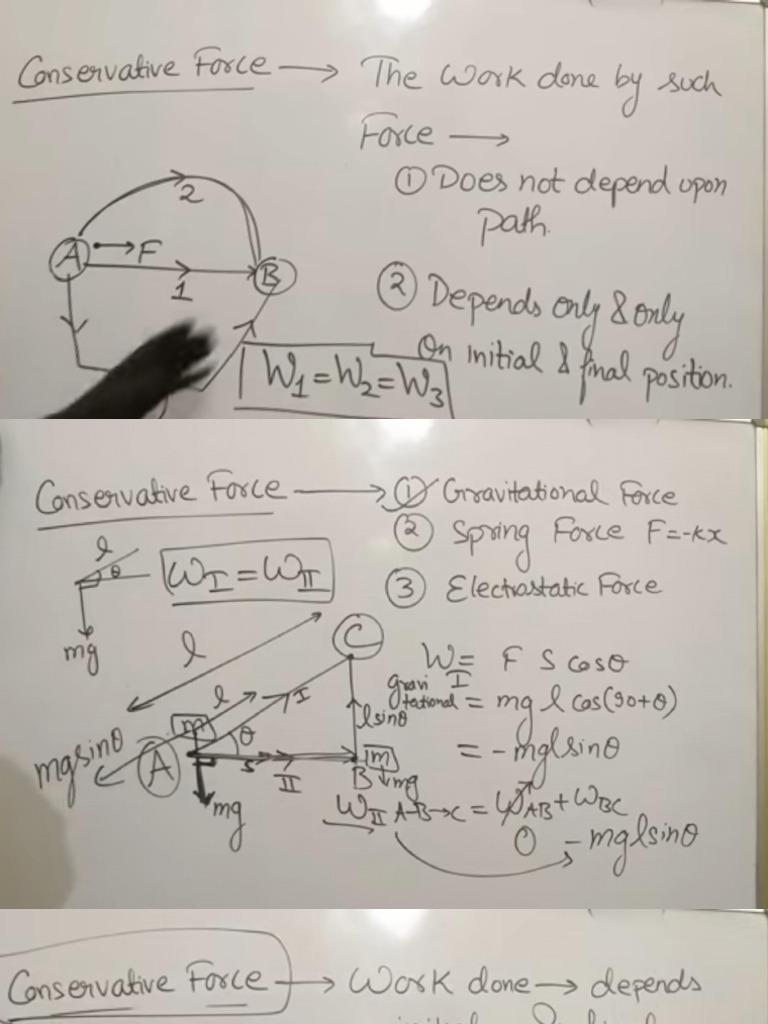 Conservative Force → The Work done by such
Force →
① Does not depend upon
Path.
② Depends only & only
On initial & final position.
2
A F B
1
W₁ = W₂ = W₃
Conservative Force → ① Gravitational Force
② Spring Force F=-kx
③ Electrostatic Force
l
θ
W_I = W_II
mg
C
l
l I
lsinθ
m
θ
mgsinθ
A s m
II B mg
mg
W = F S cosθ
gravi I
tational = mg l cos(90+θ)
= - mglsinθ
W_II A-B→C = W_AB + W_BC
0 - mglsinθ
Conservative Force → Work done → depends